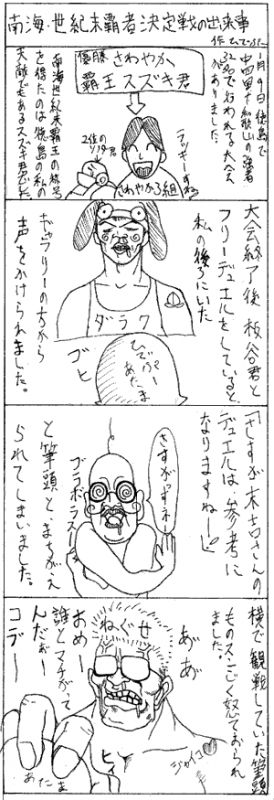 南海・世紀末覇者決定戦の出来事
作 ひでぶー
月9日徳島で
中四国+和歌山の強者
32名で行われる大会
がありました。
優勝
さわやか
覇王スズキ君
南海世紀末覇王の称号
を得たのは徳島の私の
天敵でもあるスズキ君でした
2位の
ラッキーすね
さわやか3組
大会終了後 板谷君と
フリーデュエルをしていると
私の後ろにいた
ギャラリーの方から
声をかけられました。
ダラク
ひでぶー
あたま
ゴヒ
「さすが末吉さんの
デュエルは参考に
なりますねー」
と筆頭とまちがえ
られてしまいました。
さすがッすネ
ブコボラス
横で観戦していた筆頭
ものスゴく怒ておられ
ました。
ねぐせ
あ゛あ゛
おめー
誰とマチがって
んだぁー
コデー
ジャイコ
ヒィ
あたま